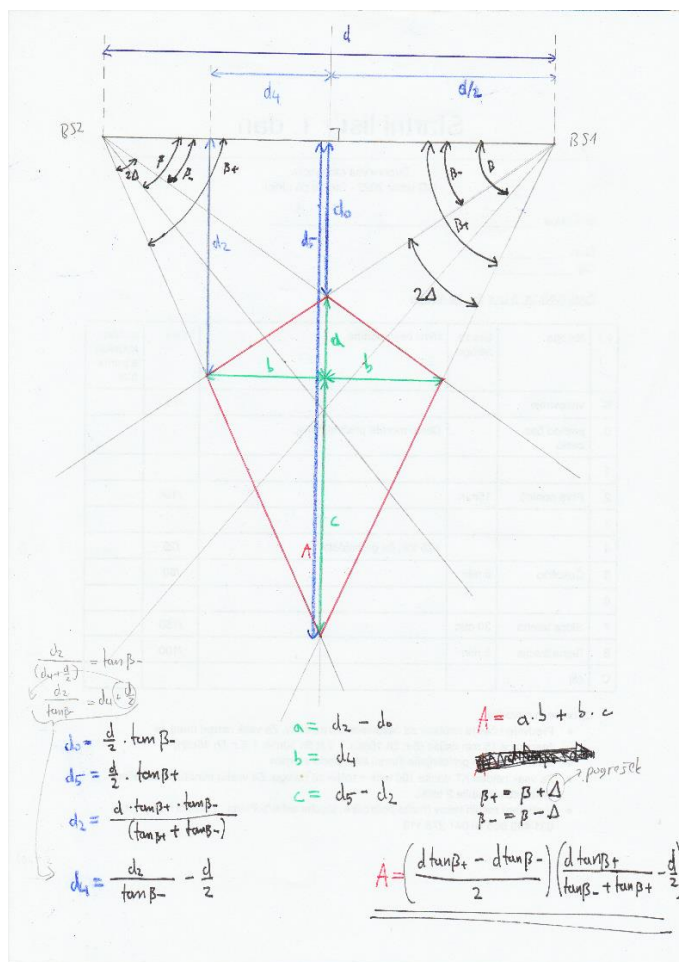 d
d4
d/2
BS2
BS1
2Δ
β
β-
β+
β-
β
β+
d2
d5
d0
2Δ
a
b
b
c
A
d2/(d4+d/2) = tanβ-
d2/tanβ- = d4+d/2
d0 = d/2 · tanβ-
d5 = d/2 · tanβ+
d2 = d·tanβ+·tanβ-/(tanβ+ + tanβ-)
d4 = d2/tanβ- - d/2
a = d2 - d0
b = d4
c = d5 - d2
A = a·b + b·c
β+ = β + Δ → pogrešek
β- = β - Δ
A = ((d tanβ+ - d tanβ-)/2) (d tanβ+/(tanβ- + tanβ+) - d/2)